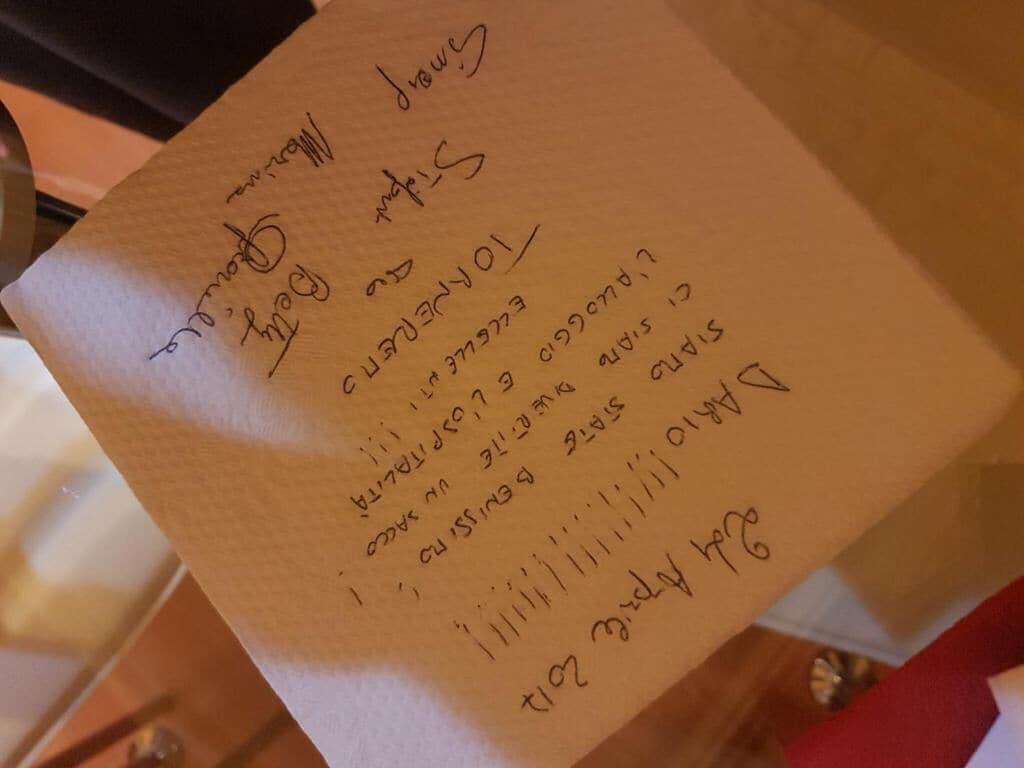 24 Aprile 2017
DARIO!!!!!!!!!!!!!!
SIAMO STATE BENISSIMO,
CI SIAMO DIVERTITE UN SACCO!
L'ALLOGGIO E L'OSPITALITÀ
ECCELLENTI!!!
TORNEREMO
Betty
Marina